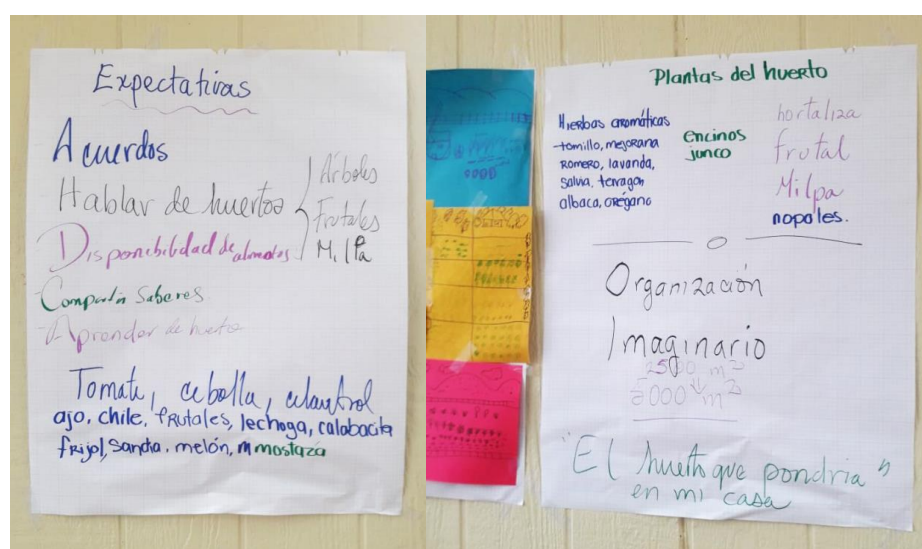 Expectativas
Acuerdos
Hablar de huertos
Árboles
Frutales
Milpa
Disponibilidad de alimentos
Compartir Saberes
Aprender de huerto
Tomate, cebolla, cilantrol
ajo, chile, frutales, lechoga, calabacita
frijol, Sandia, melón, m mostaza
Plantas del huerto
Hierbas aromáticas
tomillo, mejorana
Romero, lavanda,
Salvia, terragon
albaca, orégano
encinos
junco
hortaliza
frutal
Milpa
nopales.
Organización
Imaginario
2500 m2
5000 m2
"El huerto que pondria"
en mi casa